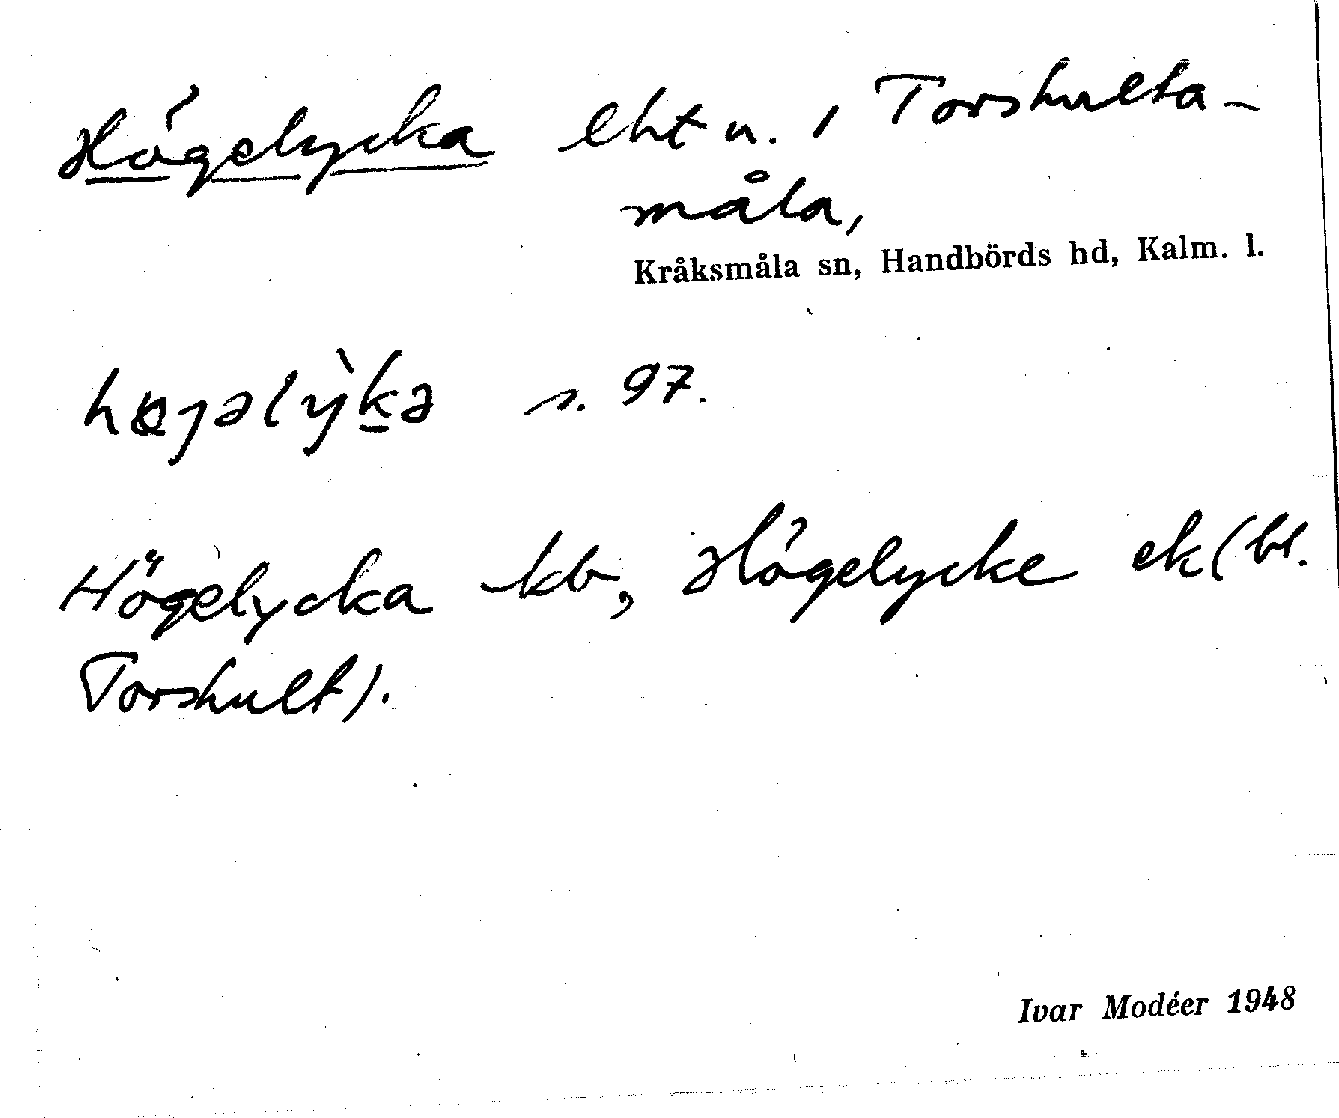 Högelycka lht u. i Torshulta-
måla,
Kråksmåla sn, Handbörds hd, Kalm. l.
s. 97.
Högelycka kb, Högelycke ek (bl.
Torshult).
Ivar Modéer 1948